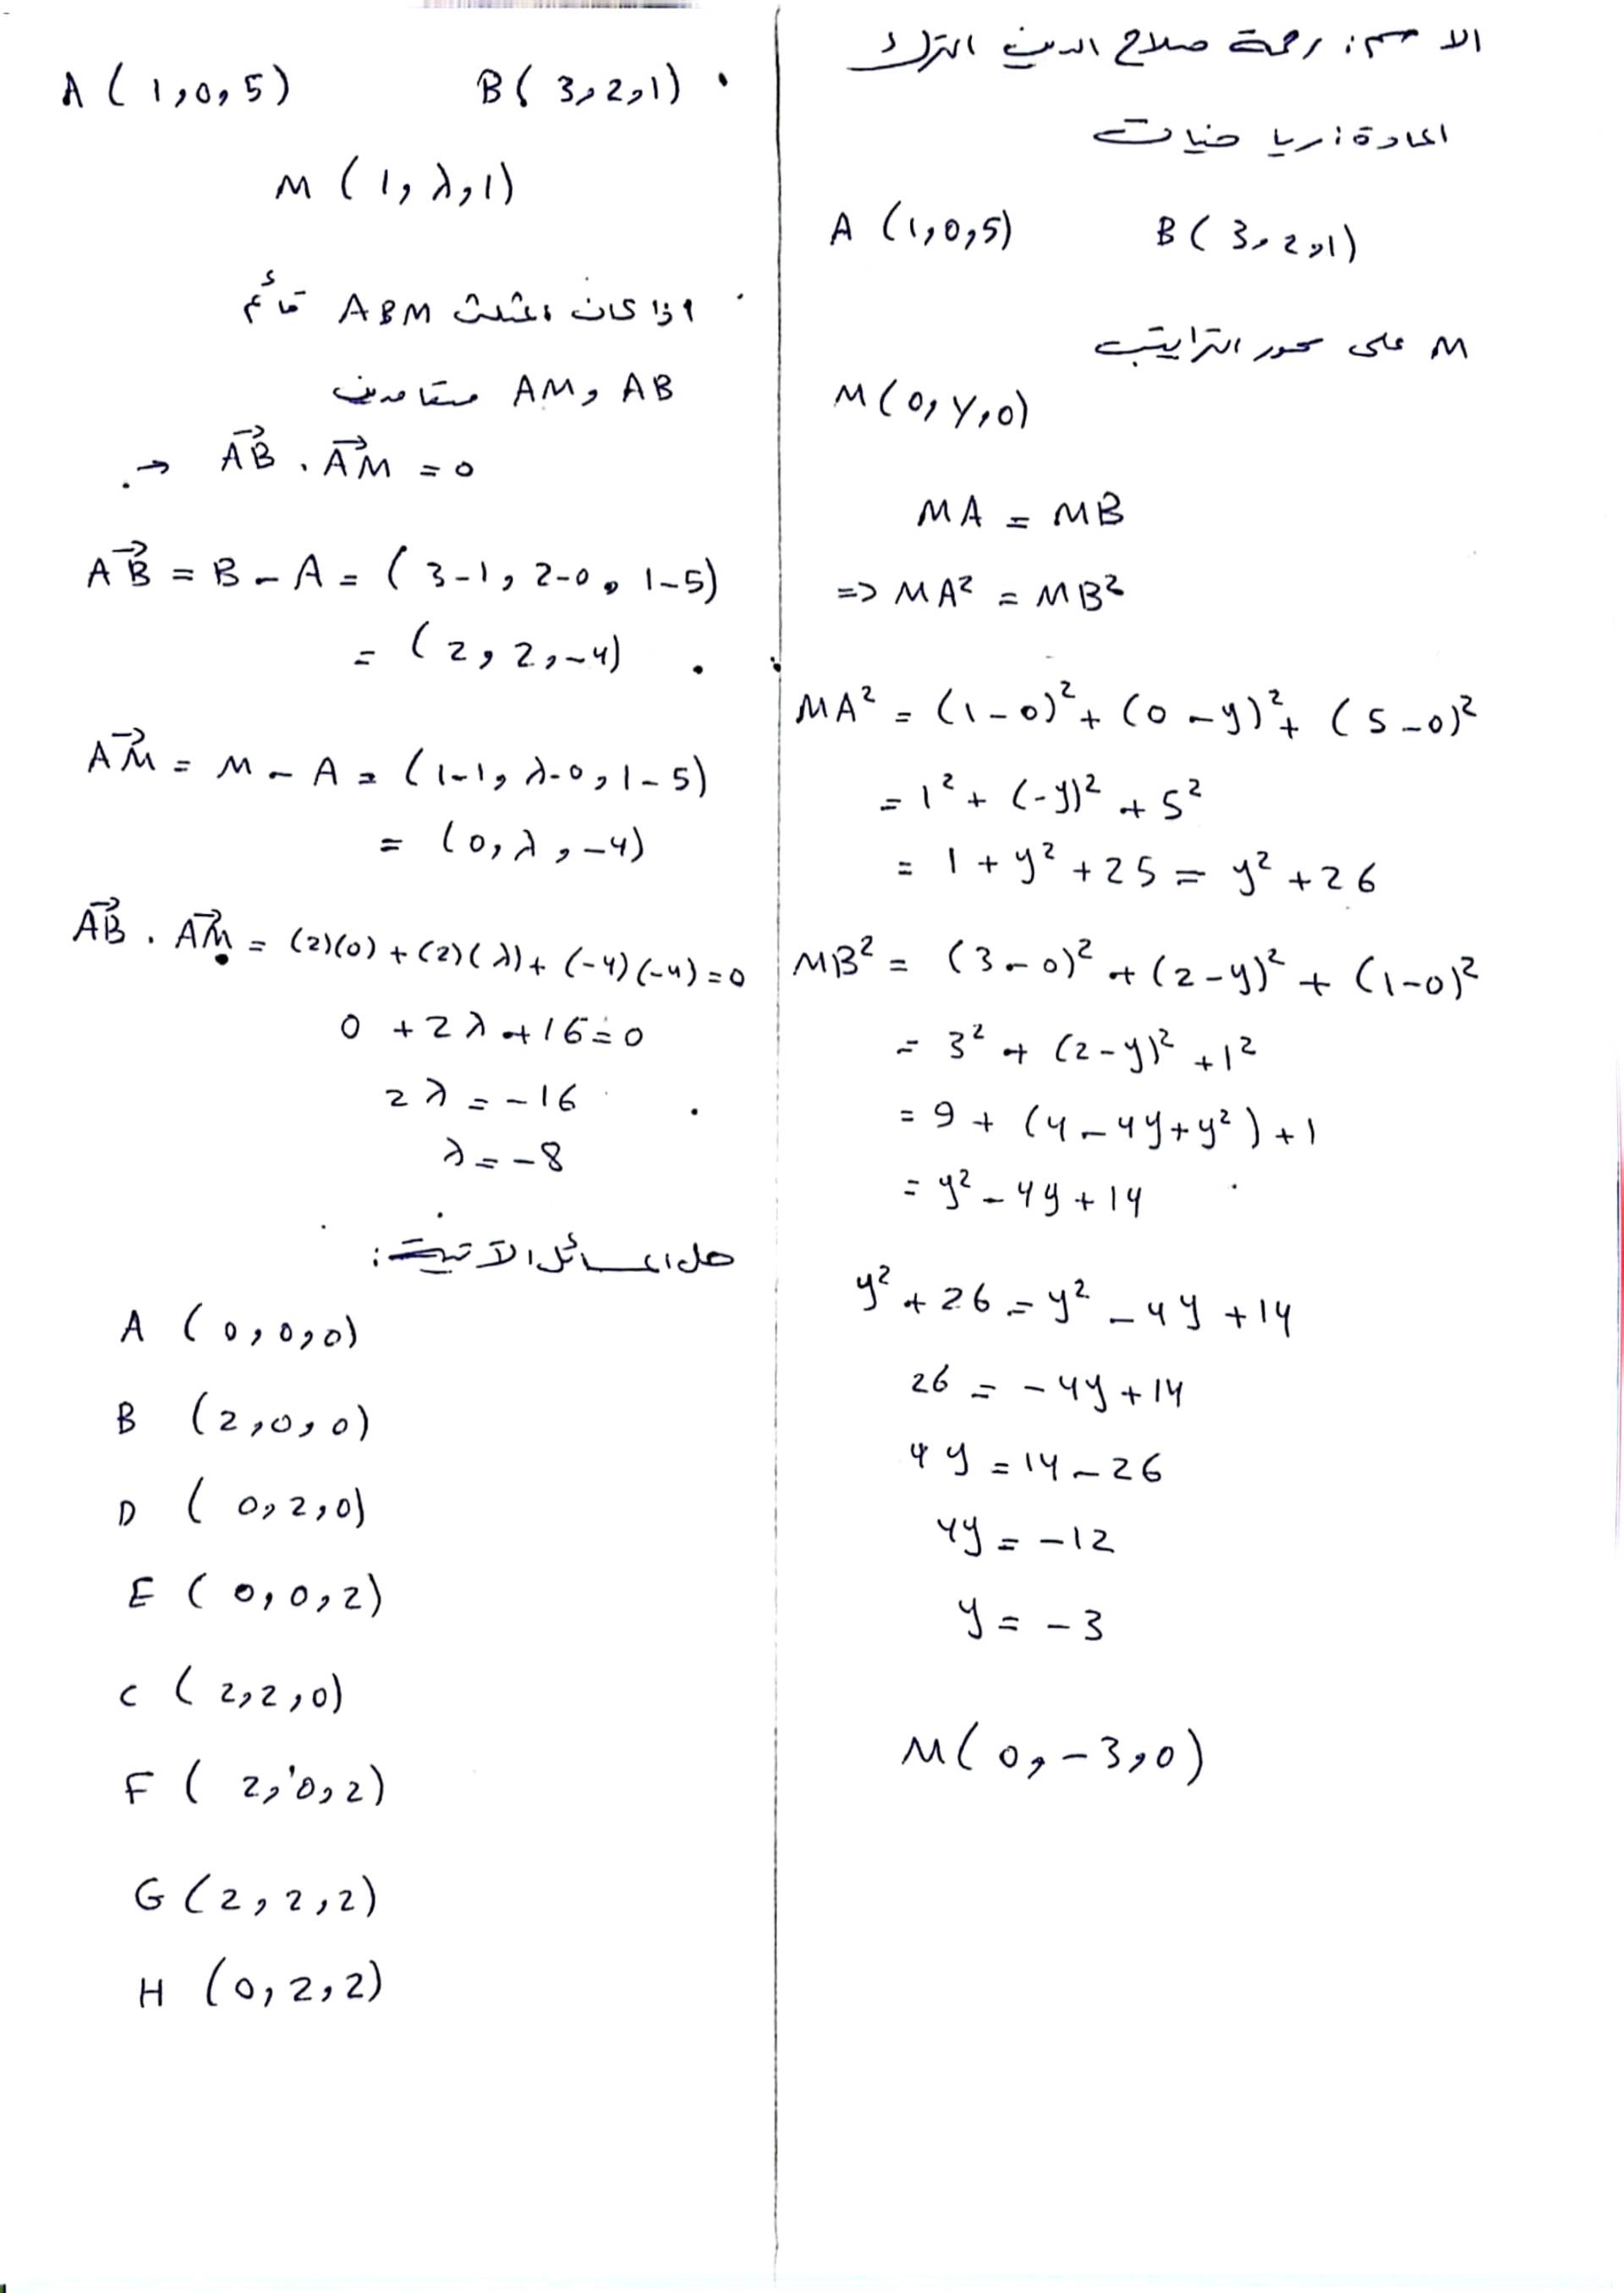 الاسم: رحمة صلاح الدين الترك
المادة: رياضيات
A (1,0,5) B (3,2,1)
M على محور التراتيب
M(0,y,0)
MA = MB
=> MA² = MB²
MA² = (1-0)² + (0-y)² + (5-0)²
= 1² + (-y)² + 5²
= 1 + y² + 25 = y² + 26
MB² = (3-0)² + (2-y)² + (1-0)²
= 3² + (2-y)² + 1²
= 9 + (4-4y+y²) + 1
= y² - 4y + 14
y² + 26 = y² - 4y + 14
26 = -4y + 14
4y = 14 - 26
4y = -12
y = -3
M(0,-3,0)
A (1,0,5) B (3,2,1)
M (1,λ,1)
اذا كان مثلث ABM قائم
AM, AB متعامدين
→ AB⃗ . AM⃗ = 0
AB⃗ = B - A = (3-1, 2-0, 1-5)
= (2, 2, -4)
AM⃗ = M - A = (1-1, λ-0, 1-5)
= (0, λ, -4)
AB⃗ . AM⃗ = (2)(0) + (2)(λ) + (-4)(-4) = 0
0 + 2λ + 16 = 0
2λ = -16
λ = -8
حل المسائل الآتية:
A (0,0,0)
B (2,0,0)
D (0,2,0)
E (0,0,2)
C (2,2,0)
F (2,0,2)
G (2,2,2)
H (0,2,2)